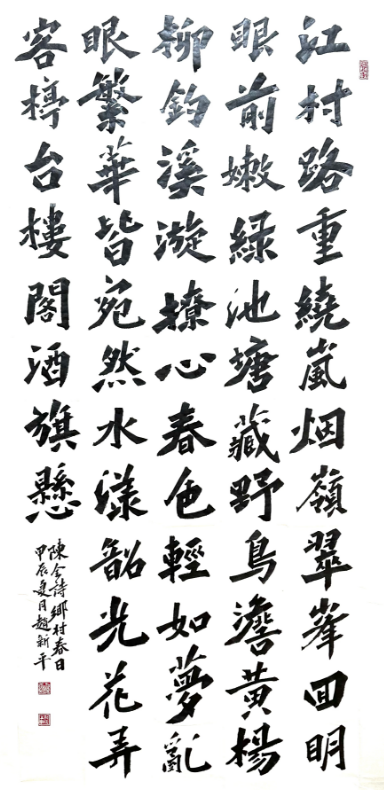 江村路重繞嵐烟嶺翠峯回明
眼前嫩緑池塘藏野鳥澹黄楊
柳鈎溪漩撩心春色輕如夢亂
眼繁華皆宛然水漾韶光花弄
客台樓閣酒旗懸
陳詩鄉村春日
甲辰夏月趙新平